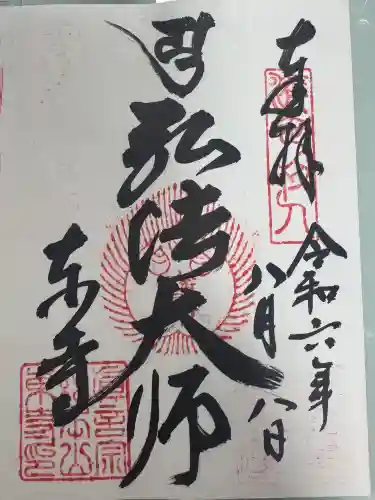 奉拝
令和六年
八月八日
弘法大師
東寺